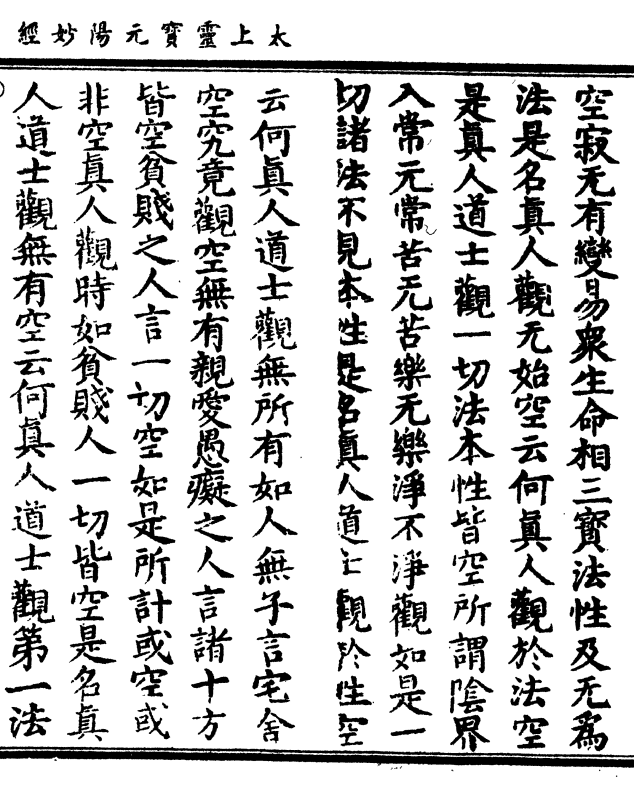 太上靈寶元陽妙經
空寂无有變易衆生命相三寶法性及无爲
法是名眞人觀无始空云何眞人觀於法空
是眞人道士觀一切法本性皆空所謂陰界
入常无常苦无苦樂无樂淨不淨觀如是一
切諸法不見本性是名眞人道士觀於性空
云何眞人道士觀無所有如人無子言宅舍
空究竟觀空無有親愛愚癡之人言諸十方
皆空貧賤之人言一切空如是所計或空或
非空眞人觀時如貧賤人一切皆空是名眞
人道士觀無有空云何眞人道士觀第一法